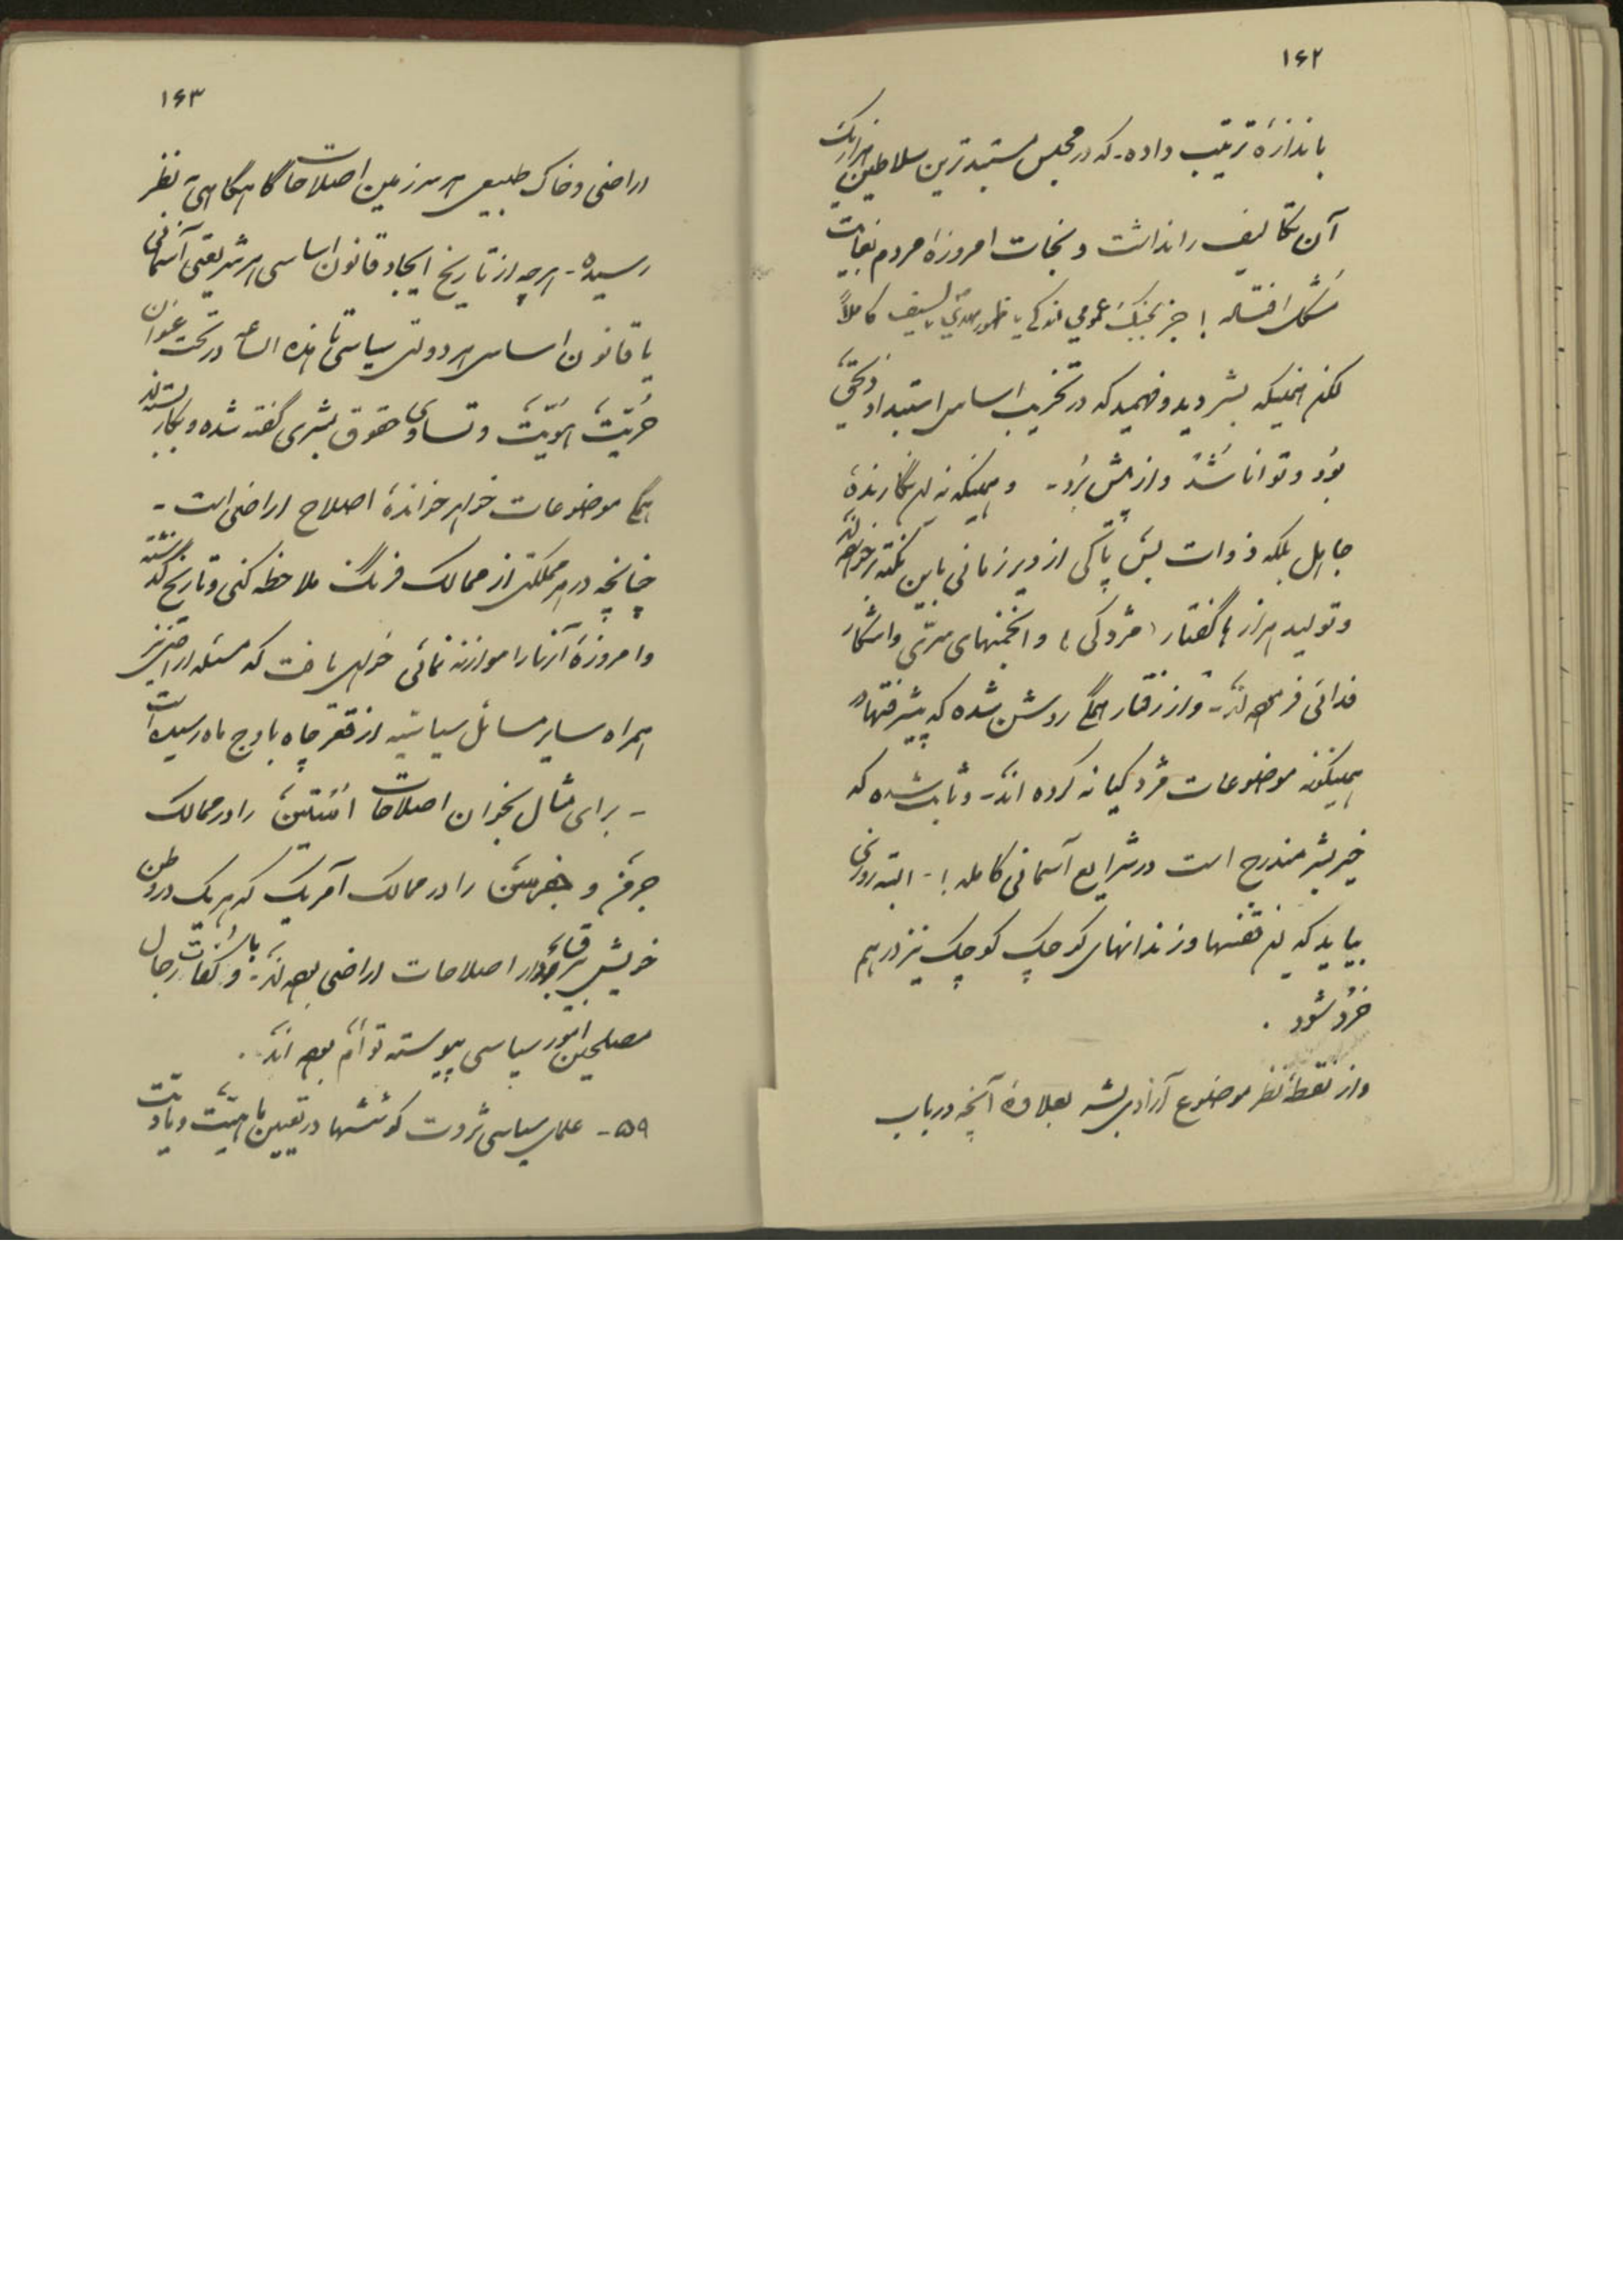 ۱۶۲
باندازهٔ ترتیب داده - که در مجلس مستبدترین سلاطین هزار یک
آن تکالیف را نداشت و نجات امروزهٔ مردم بغایت
مشکل افتاده ! جز بجنگ عمومی یا ظهور مهدی بالسیف کاملاً
لکن همینکه بشر دید و فهمید که در تخریب اساس استبداد ذیحق
بود و توانا شد و از پیش برد - و همینکه نه این نگارندهٔ
جاهل بلکه ذوات بس پاکی از دیر زمانی باین نکته برخورده‌اند
و تولید هزارها گفتار (مزدکی) و انجمنهای سرّی و اشکار
فدائی فرموده‌اند - و از رفتار همگی روشن شده که پیشرفتها در
همینگونه موضوعات مزدکیانه کرده اند - و ثابت شده که
خیر بشر مندرج است در شرایع آسمانی کامله ! - البته روزی
بیاید که این قفسها و زندانهای کوچک کوچک نیز درهم
خرد شود .
و از نقطه نظر موضوع آزادی بشر بعلاوهٔ آنچه در باب
۱۶۳
اراضی و خاک طبیعی هر سرزمین اصلاحات گاه گاهی بنظر
رسیده - هرچه از تاریخ ایجاد قانون اساسی هر شریعتی آسمانی
یا قانون اساسی هر دولتی سیاسی تا هذه الساعه در تحت عنوان
حرّیت، هویّت، و تساوی حقوق بشری گفته شده و بکار بسته‌اند
همگی موضوعات خواهر خواندهٔ اصلاح اراضی است -
چنانچه در هر مملکتی از ممالک فرنگ ملاحظه کنی و تاریخ گذشته
و امروزهٔ آنها را موازنه نمائی خواهی یافت که مسئله اراضی نیز
همراه سایر مسائل سیاسیّه از قعر چاه باوج ماه رسیده است
- برای مثال بخوان اصلاحات را در ممالک
و جفرسن را در ممالک آمریک که هر یک در وطن
خویش اصلاحات اراضی بوده‌اند - و رجال
مصلحین امور سیاسی پیوسته توأم بوده اند .
۵۹ - علمای سیاسی ثروت کوششها در تعیین ماهیّت و مادیّت